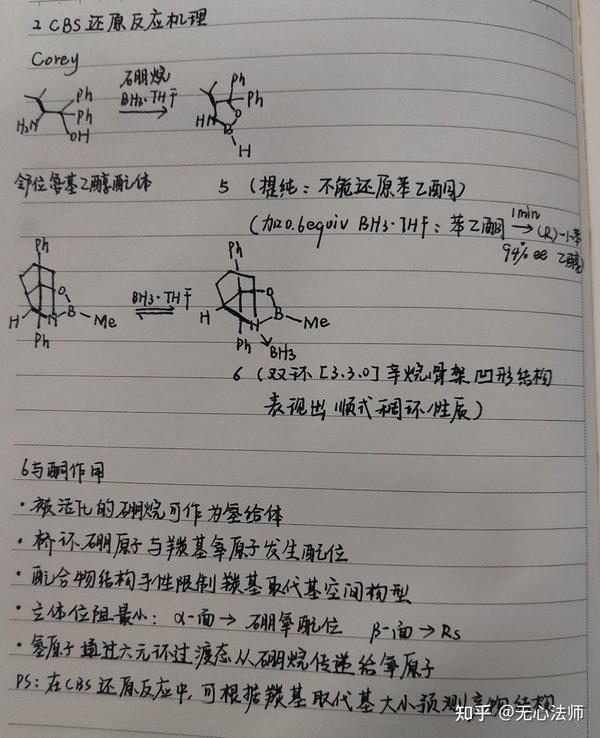 2 CBS还原反应机理
Corey
硼烷
BH3·THF
Ph
Ph
H2N
OH
Ph
Ph
HN
O
B
H
邻位氨基乙醇配体
5 (提纯:不能还原苯乙酮)
(加0.6equiv BH3·THF:苯乙酮 1min → (R)-1-苯乙醇)
94% ee
Ph
O
B
Me
N
H
Ph
BH3·THF
Ph
O
B
Me
N
H
Ph
BH3
6 (双环[3.3.0]辛烷骨架凹形结构
表现出顺式稠环性质)
6与酮作用
·被活化的硼烷可作为氢给体
·桥环硼原子与羰基氧原子发生配位
·配合物结构手性限制羰基取代基空间构型
·立体位阻最小:α-面→硼氧配位 β-面→Rs
·氢原子通过六元环过渡态从硼烷传递给氧原子
PS:在CBS还原反应中,可根据羰基取代基大小预测产物结构
知乎 @无心法师